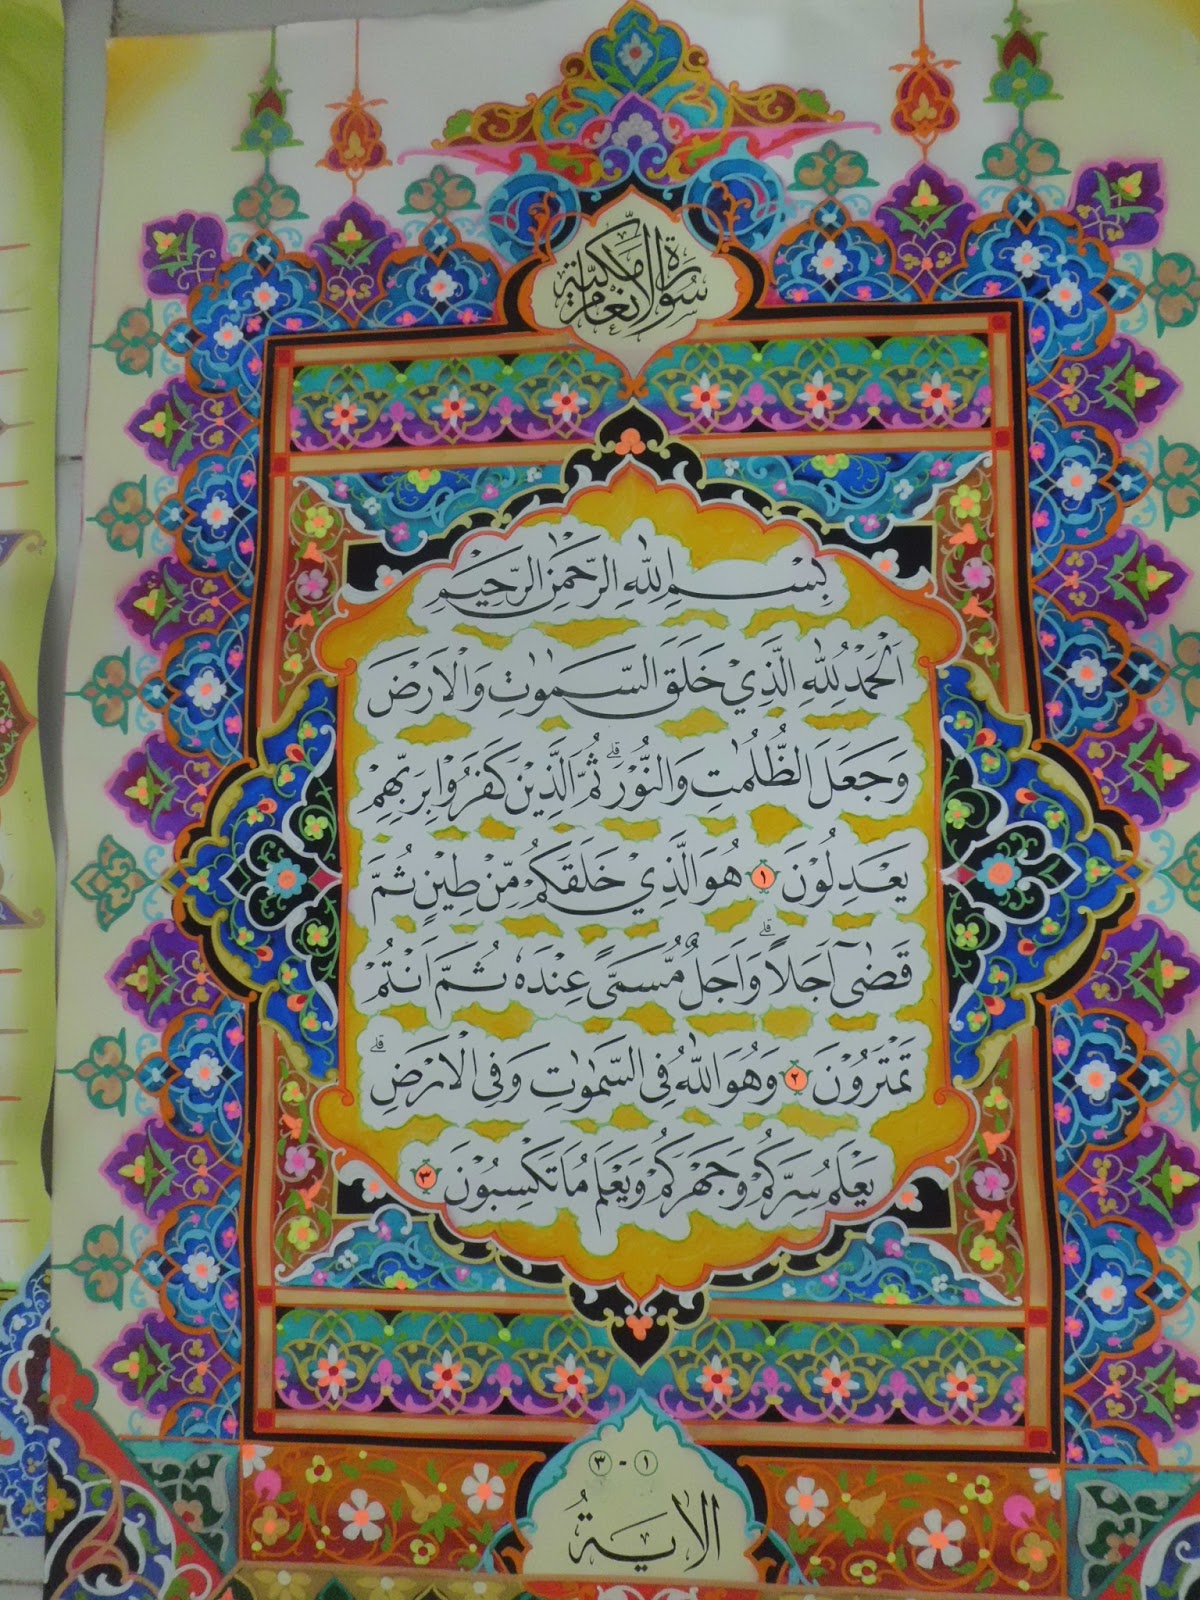 سورة الانعام مكية
بِسْمِ اللهِ الرَّحْمٰنِ الرَّحِيْمِ
اَلْحَمْدُ لِلّٰهِ الَّذِيْ خَلَقَ السَّمٰوٰتِ وَالْاَرْضَ
وَجَعَلَ الظُّلُمٰتِ وَالنُّوْرَ ۗ ثُمَّ الَّذِيْنَ كَفَرُوْا بِرَبِّهِمْ
يَعْدِلُوْنَ ١ هُوَ الَّذِيْ خَلَقَكُمْ مِّنْ طِيْنٍ ثُمَّ
قَضٰىٓ اَجَلًا ۗ وَاَجَلٌ مُّسَمًّى عِنْدَهٗ ثُمَّ اَنْتُمْ
تَمْتَرُوْنَ ٢ وَهُوَ اللهُ فِى السَّمٰوٰتِ وَفِى الْاَرْضِ ۗ
يَعْلَمُ سِرَّكُمْ وَجَهْرَكُمْ وَيَعْلَمُ مَا تَكْسِبُوْنَ ٣
١ - ٣
الاية